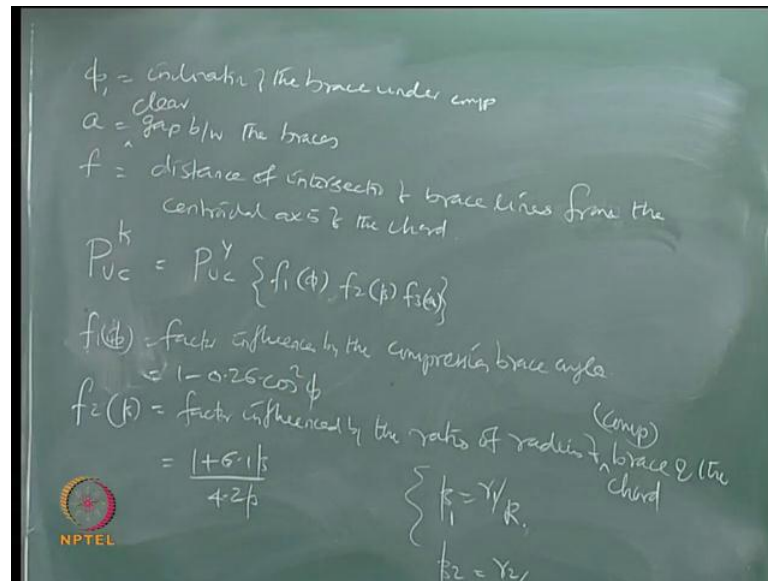 ϕ₁ = inclination of the brace under comp
clear
a = gap b/w the braces
f = distance of intersection of brace lines from the
centroidal axis of the chord.
P_UC^K = P_UC^Y { f₁(ϕ) f₂(β) f₃(a) }
f₁(ϕ) = factor influence by the compression brace angle
= 1 - 0.25 cos²ϕ
f₂(β) = factor influenced by the ratio of radius of brace & the
(comp)
chord
= 1+6.1β
4.2β
{ β₁ = r₁/R,
β₂ = r₂/
NPTEL